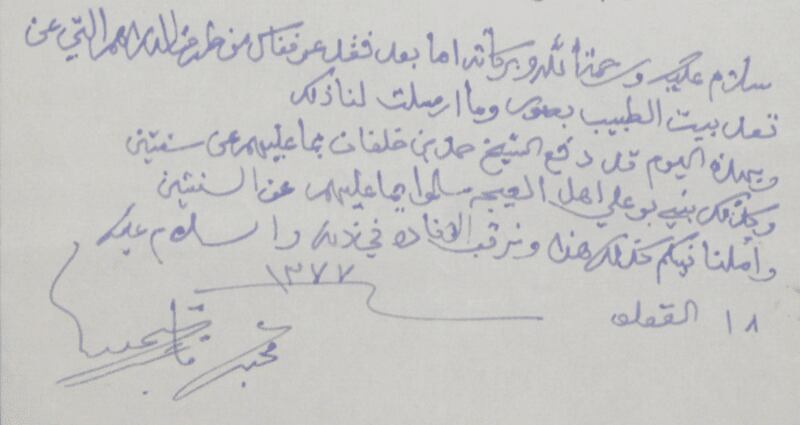 سلام عليكم ورحمة الله وبركاته اما بعد من طرف الدراهم التي عن
بيت الطبيب بصور وما ارسلت لنا ذلك
وبهذه اليوم قد دفع الشيخ حمد بن خلفان بما عليهم عن سنتين
وكذلك بني بو علي اهل سلموا بما عليهم عن السنتين
وأملنا فيكم كذلك هذا ونرقب الافاده في ذلك والسلام عليكم
١٨ القعده ١٣٧٧
محبكم